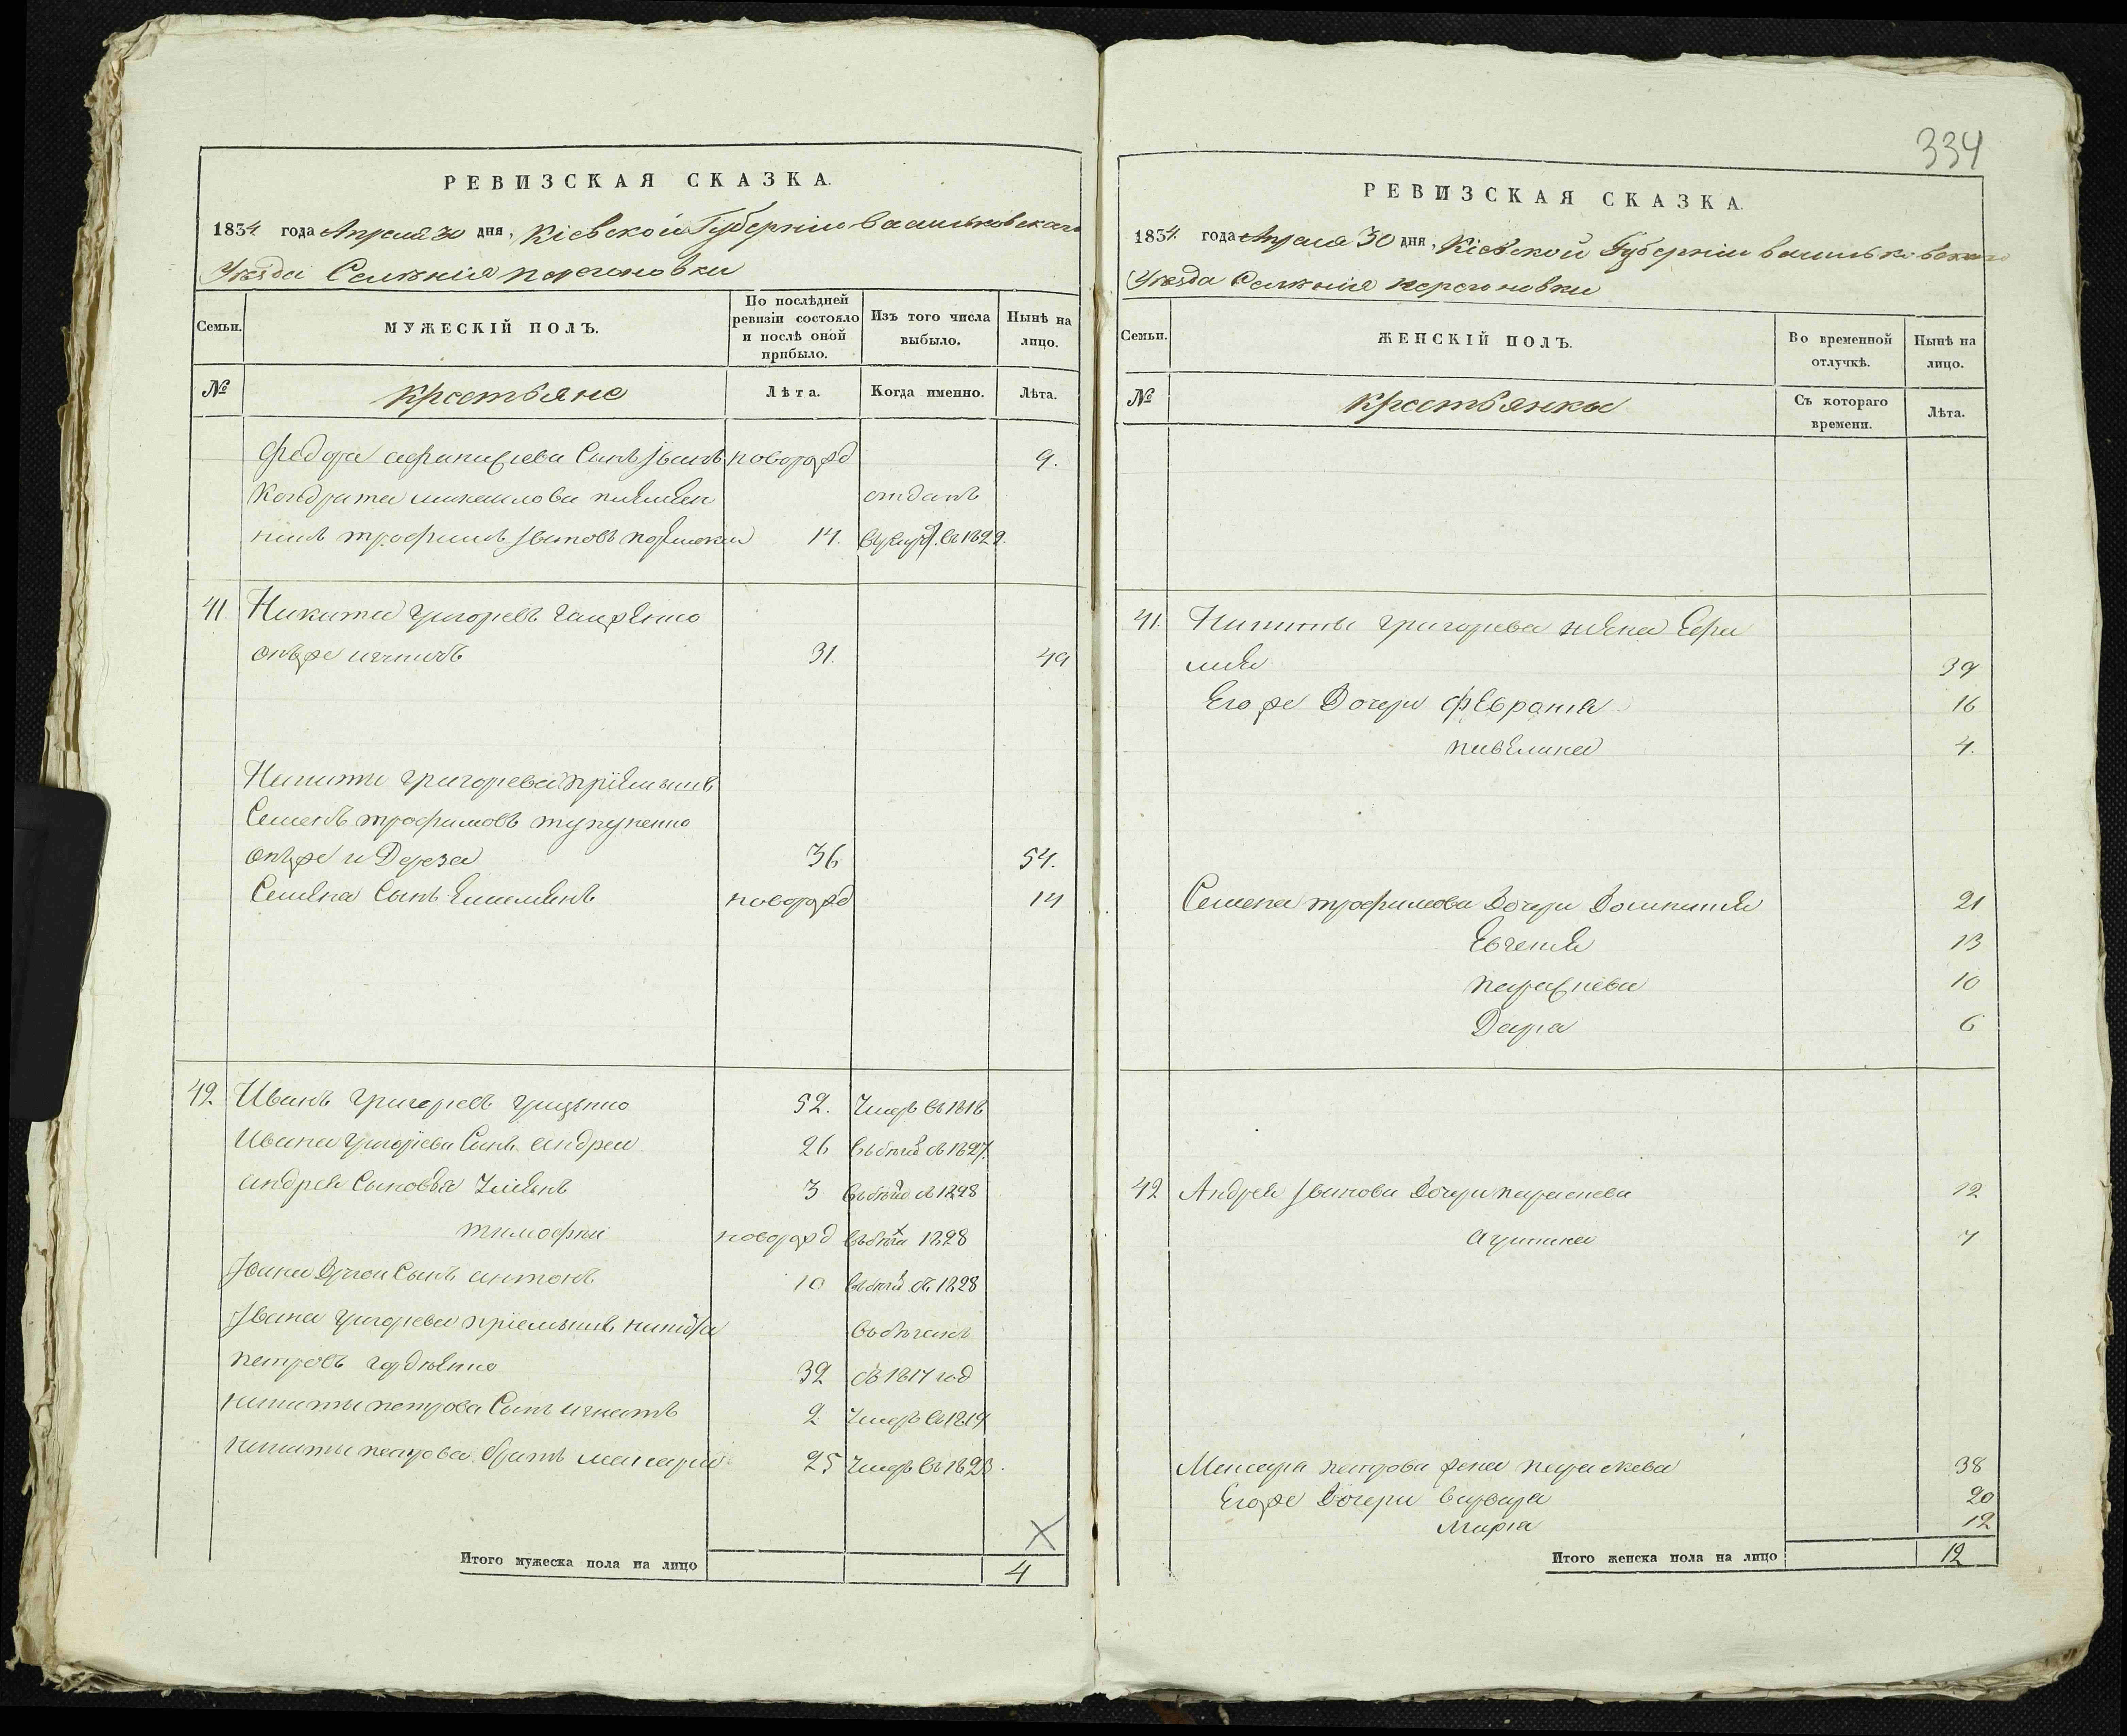 РЕВИЗСКАЯ СКАЗКА.
1834 года Апреля 30 дня, Кіевской Губерніи Васильковскаго
Уезда Селѣнія Перегоновки
Семьи. МУЖЕСКІЙ ПОЛЪ. По послѣдней ревизіи состояло и послѣ оной прибыло. Изъ того числа выбыло. Нынѣ на лицо.
№ Крестьяне Лѣта. Когда именно. Лѣта.
Федора Сынъ Иванъ новорожд 9.
Кондрата Михаилова племен отданъ
никъ трофимъ Ивановъ 14. въ 1829.
41 Никита Григорьевъ
онъже 31. 49
Никиты Григорьева пріемышъ
Семенъ трофимовъ
онъже и Дереза 36 54.
Семена Сынъ новорожд 14
42 Иванъ Григорьевъ Гриценко 52. Умеръ въ 1818
Ивана Григорьева Сынъ андрей 26 въ бегах съ 1827.
андрея Сыновья 3 въ бегах съ 1828
тимофей новорожд въ бегах 1828
Ивана Другой Сынъ антонъ 10 въ бегах съ 1828
Ивана Григорьева пріемышъ никита въ бегахъ
петровъ гордіенко 32 съ 1817 год
никиты петрова Сынъ игнатъ 2 Умеръ въ 1819
никиты петрова братъ макаръ 25 Умеръ въ 1823.
Итого мужеска пола на лицо 4
334
РЕВИЗСКАЯ СКАЗКА.
1834 года Апреля 30 дня, Кіевской Губерніи Васильковскаго
Уезда Селѣнія Перегоновки
Семьи. ЖЕНСКІЙ ПОЛЪ. Во временной отлучкѣ. Нынѣ на лицо.
№ Крестьянки Съ котораго времени. Лѣта.
41. Никиты Григорьева жена Ефи
мия 39
Его же Дочери Февронія 16
павлина 4.
Семена трофимова Дочери Домникия 21
Евгения 13
параскева 10
Дарья 6
42 Андрея Иванова Дочери параскева 12
агрипина 7
Макара петрова жена параскева 38
Его же Дочери варвара 20
Марія 12
Итого женска пола на лицо 12